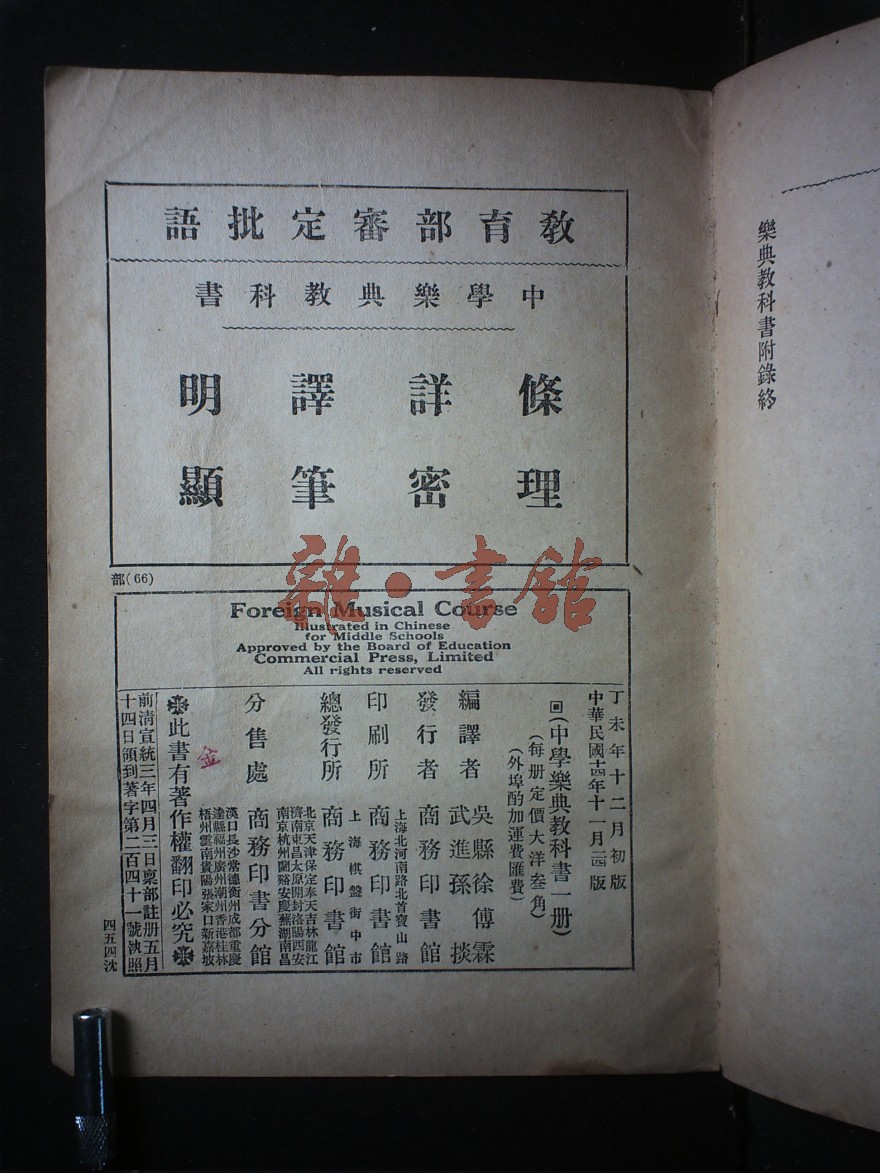 樂典教科書附錄終
教育部審定批語
中學樂典教科書
條理
詳密
譯筆
明顯
部(66)
Foreign Musical Course
Illustrated in Chinese
for Middle Schools
Approved by the Board of Education
Commercial Press, Limited
All rights reserved
丁未年十二月初版
中華民國十四年十一月二四版
回(中學樂典教科書一册)
(每册定價大洋叁角)
(外埠酌加運費匯費)
編譯者 吳縣徐傅霖 武進孫掞
發行者 商務印書館
上海北河南路北首寶山路
印刷所 商務印書館
上海棋盤街中市
總發行所 商務印書館
北京天津保定奉天吉林龍江
濟南東昌太原開封洛陽西安
南京杭州蘭谿安慶蕪湖南昌
分售處 商務印書分館
漢口長沙常德衡州成都重慶
達縣福州廣州潮州香港桂林
梧州雲南貴陽張家口新嘉坡
金
此書有著作權翻印必究
前清宣統三年四月三日稟部註册五月
十四日領到著字第二百四十一號執照
四五四沈
雜·書館